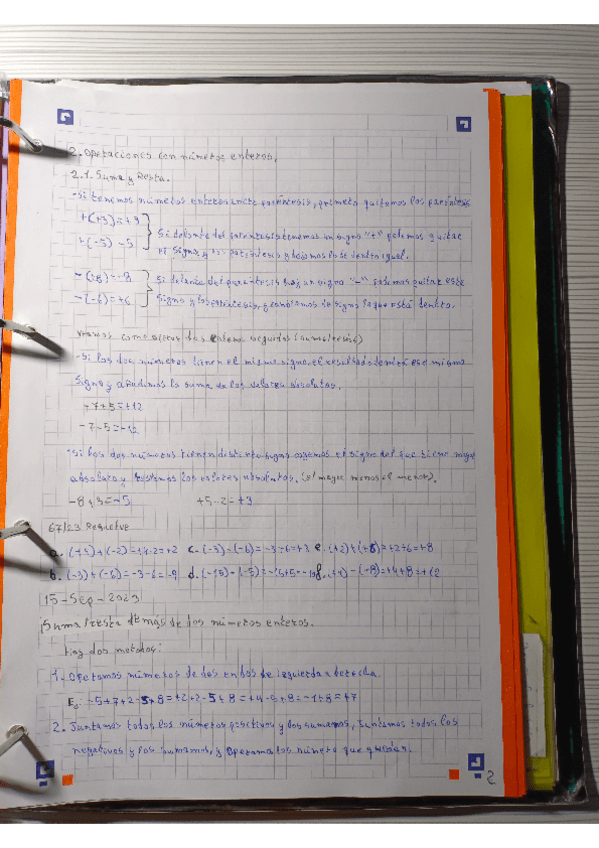 2. Operaciones con números enteros.
2.1. Suma y Resta.
-Si tenemos números enteros entre paréntesis, primero quitamos los paréntesis
+(+3)=+3
+(-5) -5
Si delante del parentesis tenemos un signo "+" podemos quitar
el signo y los paréntesis y dejamos lo de dentro igual.
-(+8)=-8
-(-6)=+6
Si delante del paréntesis hay un signo "-" podemos quitar este
signo y los paréntesis, y cambiamos de signo lo que está dentro.
Veamos como operar dos enteros seguidos
-Si los dos números tienen el mismo signo, el resultado tendrá ese mismo
signo y añadimos la suma de los valores absolutos.
+7+5=+12
-7-5=-12
-Si los dos números tienen distinto signo cogemos el signo del que tiene mayor
absoluto y restamos los valores absolutos. (el mayor menos el menor).
-8+3=-5 +5-2=+3
67/23 Resuelve
a. (+4)+(-2)=+4-2=+2 c. (-3)-(-6)=-3+6=+3 e. (+2)+(+6)=+2+6=+8
b. (-3)+(-6)=-3-6=-9 d. (-15)-(-5)=-15+5=-10 f. (+4)-(-8)=+4+8=+12
15-Sep-2023
Suma/resta de más de dos números enteros.
Hay dos metodos:
1. Operamos números de dos en dos de izquierda a derecha.
Ej: -5+7+2-5+8=+2+2-5+8=+4-5+8=-1+8=+7
2. Juntamos todos los números positivos y los sumamos, juntamos todos los
negativos y los sumamos, y operamos los número que quedan.
2